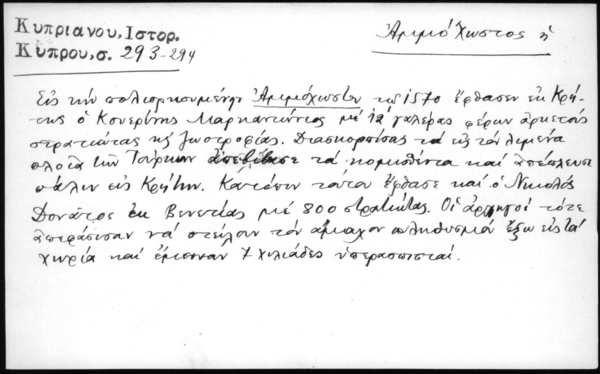 Κυπριανου, Ιστορ. Ἀμμόχωστος ἡ
Κύπρου, σ. 293-294
Εἰς τὴν πολιορκουμένην Ἀμμόχωστον τῷ 1570 ἔφθασεν ἐκ Κρή-
της ὁ Κουερίνης Μαρκαντώνιος μέ 12 γαλέρας φέρων ἀρκετούς
στρατιώτας κ̀ ζωοτροφίας. Διασκορπίσας τά εἰς τόν λιμένα
πλοῖα τῶν Τούρκων ἀπεβίβασε τά κομισθέντα καί ἀπέπλευσε
πάλιν εἰς Κρήτην. Κατόπιν τούτου ἔφθασε καί ὁ Νικολός
Δονᾶτος ἐκ Βενετίας μέ 800 στρατιώτας. Οἱ ἀρχηγοί τότε
ἀπεφάσισαν νά στείλουν τόν ἄμαχον πληθυσμό ἔξω εἰς τά
χωρία καί ἔμειναν 7 χιλιάδες ὑπερασπισταί.